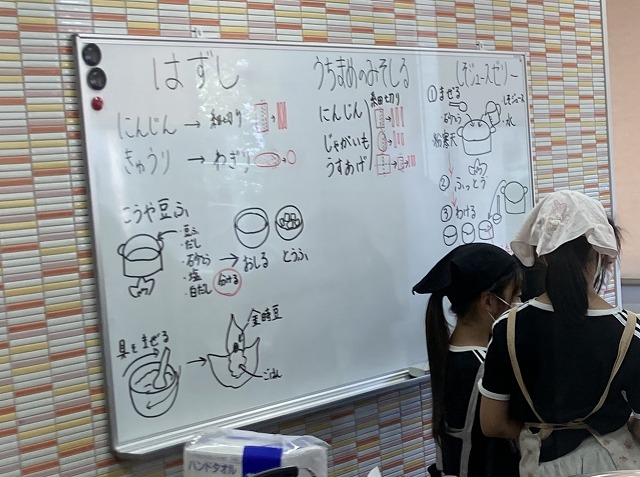 はずし
にんじん → 細切り
きゅうり → わぎり
こうや豆ふ
・豆ふ
・だし
・さとう
・塩
・白だし
→ おしる
分ける
とうふ
具をまぜる
金時豆
ごはん
うちまめのみそしる
にんじん
細切り
じゃがいも
うすあげ
しそジュースゼリー
①まぜる
さとう
粉寒天
しそジュース
水
②ふっとう
③わける
ハンドタオル